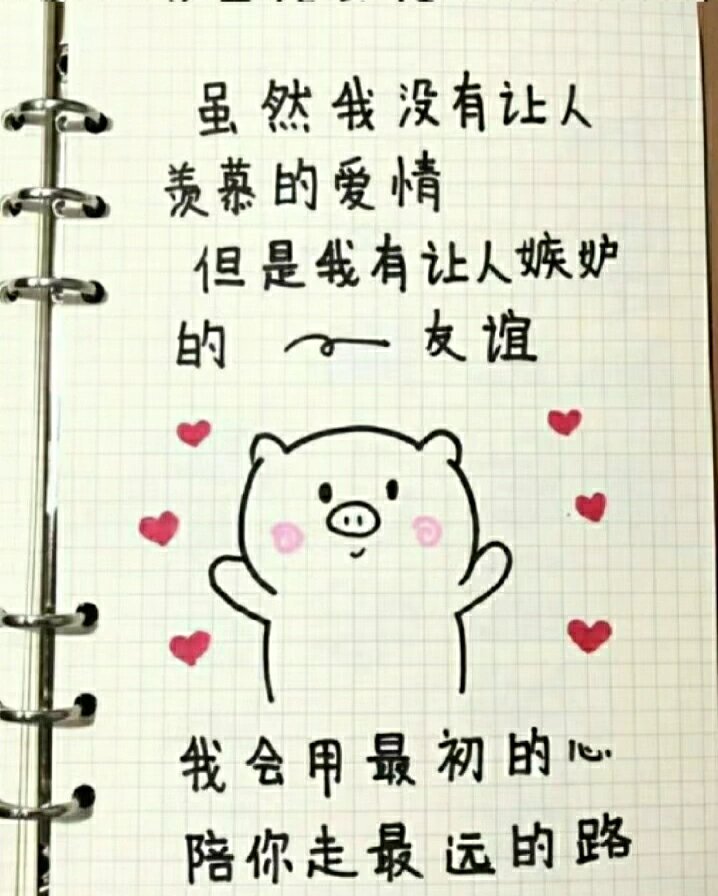 虽然我没有让人
羡慕的爱情
但是我有让人嫉妒
的 友谊
我会用最初的心
陪你走最远的路